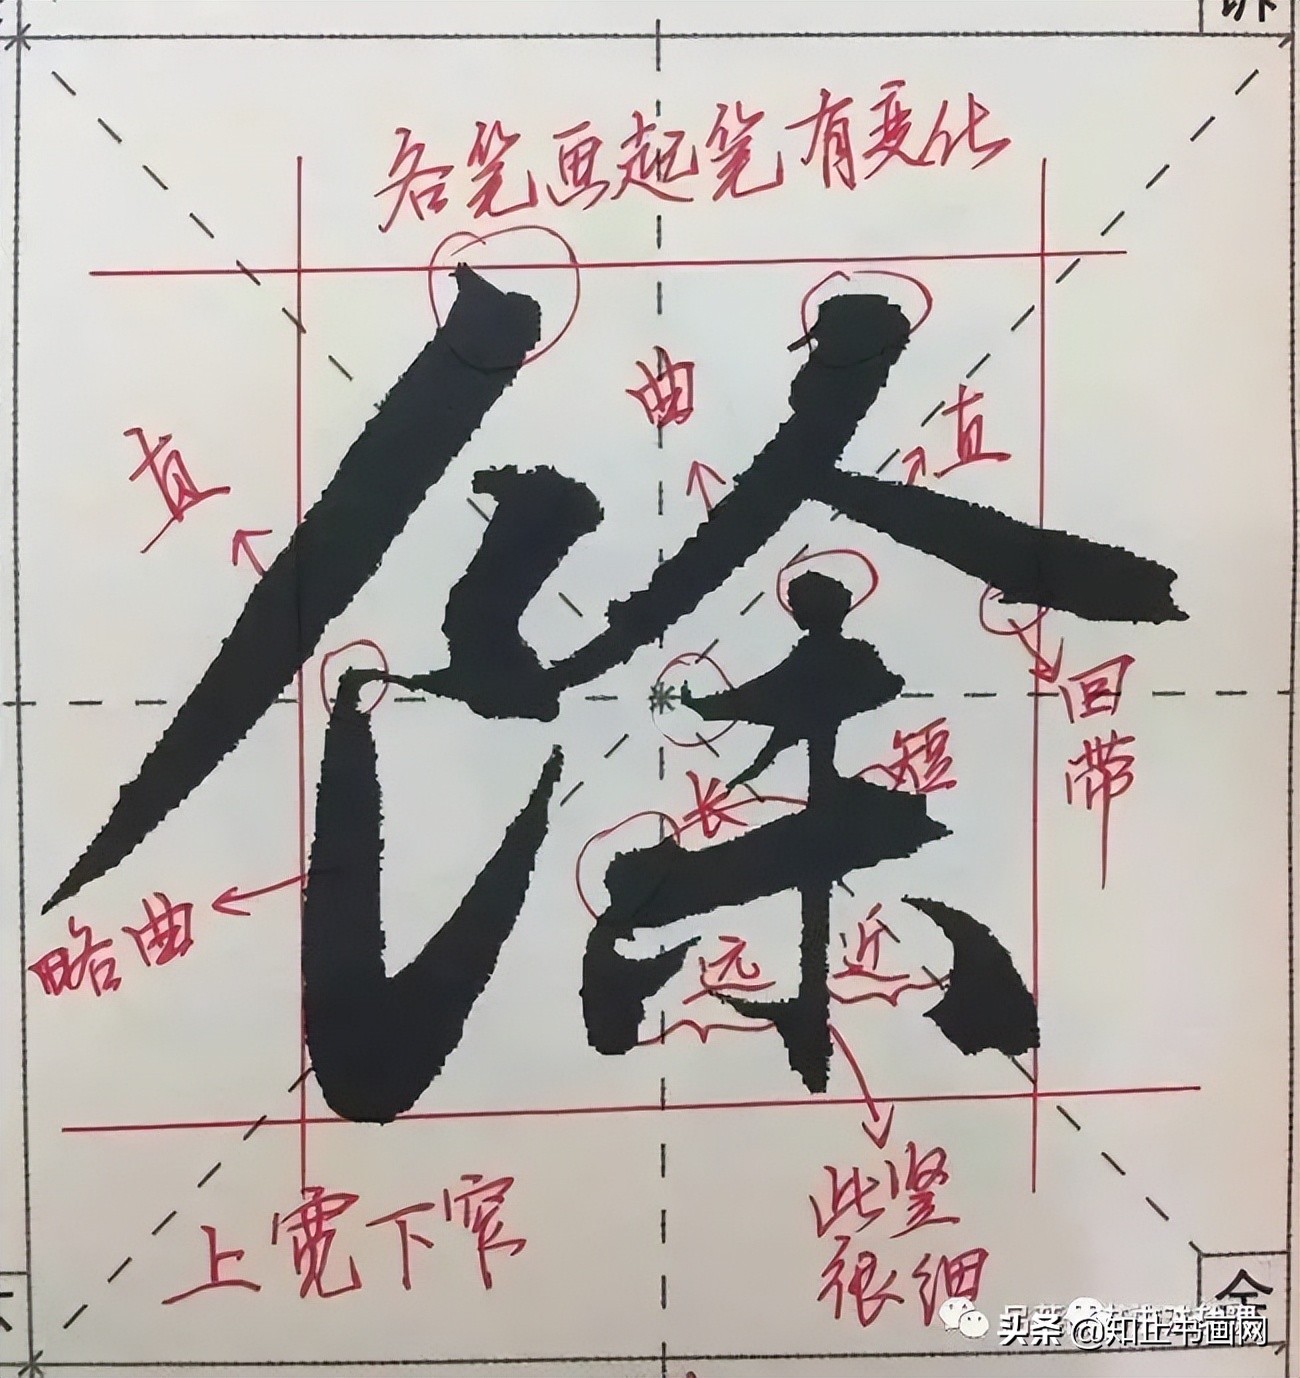 各笔画起笔有变化
曲
直
直
馀
回带
短
长
略曲
远
近
上宽下窄
此竖
很细
头条 @知止书画网